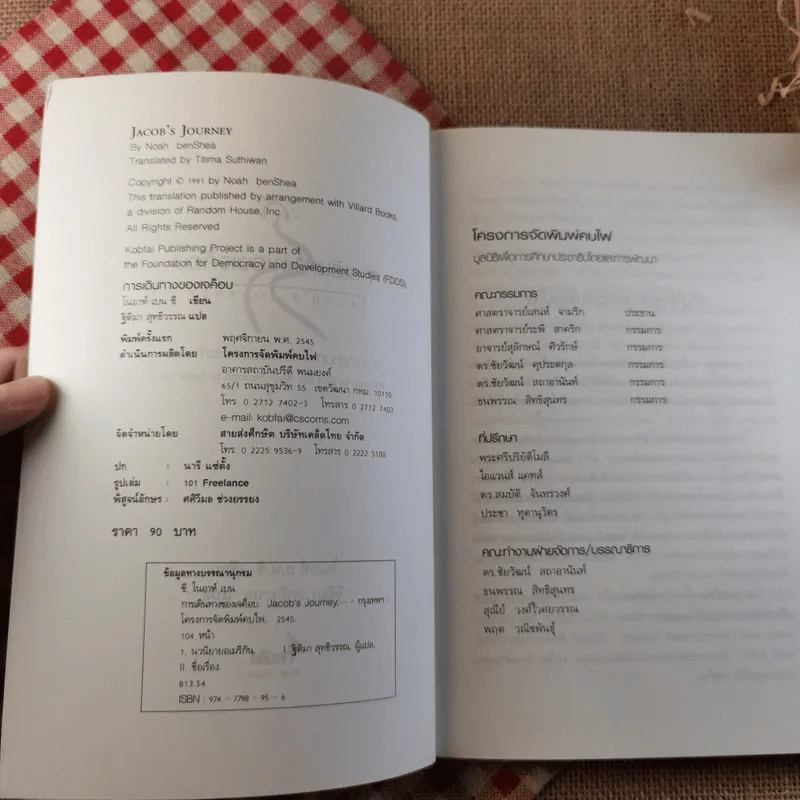 JACOB'S JOURNEY
By Noah benShea
Translated by Titima Suthiwan
Copyright © 1991 by Noah benShea
This translation published by arrangement with Villard Books,
a division of Random House, Inc.
All Rights Reserved
Kobfai Publishing Project is a part of
the Foundation for Democracy and Development Studies (FDDS).
การเดินทางของเจค็อบ
โนอาห์ เบน ชี เขียน
ฐิติมา สุทธิวรรณ แปล
พิมพ์ครั้งแรก พฤศจิกายน พ.ศ. 2545
ดำเนินการผลิตโดย โครงการจัดพิมพ์คบไฟ
อาคารสถาบันปรีดี พนมยงค์
65/1 ถนนสุขุมวิท 55 เขตวัฒนา กทม. 10110
โทร 0 2712 7402-3 โทรสาร 0 2712 7403
e-mail: kobfai@cscoms.com
จัดจำหน่ายโดย สายส่งศึกษิต บริษัทเคล็ดไทย จำกัด
โทร. 0 2225 9536-9 โทรสาร 0 2222 5188
ปก : นารี แซ่ตั้ง
รูปเล่ม : 101 Freelance
พิสูจน์อักษร : ศศิวิมล ช่วงยรรยง
ราคา 90 บาท
ข้อมูลทางบรรณานุกรม
ชี, โนอาห์ เบน.
การเดินทางของเจค็อบ. Jacob's Journey.-- กรุงเทพฯ :
โครงการจัดพิมพ์คบไฟ, 2545.
104 หน้า
1. นวนิยายอเมริกัน. I. ฐิติมา สุทธิวรรณ, ผู้แปล.
II. ชื่อเรื่อง.
813.54
ISBN : 974 - 7798 - 95 - 6
โครงการจัดพิมพ์คบไฟ
มูลนิธิเพื่อการศึกษาประชาธิปไตยและการพัฒนา
คณะกรรมการ
ศาสตราจารย์เสน่ห์ จามริก ประธาน
ศาสตราจารย์ระพี สาคริก กรรมการ
อาจารย์สุลักษณ์ ศิวรักษ์ กรรมการ
ดร.ชัยวัฒน์ คุประตกุล กรรมการ
ดร.ชัยวัฒน์ สถาอานันท์ กรรมการ
ธนพรรณ สิทธิสุนทร กรรมการ
ที่ปรึกษา
พระศรีปริยัติโมลี
ไอแวนส์ แคทส์
ดร.สมบัติ จันทรวงศ์
ประชา หุตานุวัตร
คณะทำงานฝ่ายจัดการ/บรรณาธิการ
ดร.ชัยวัฒน์ สถาอานันท์
ธนพรรณ สิทธิสุนทร
สุณีย์ วงศ์ไวศยวรรณ
พฤฒ วณิชพันธุ์